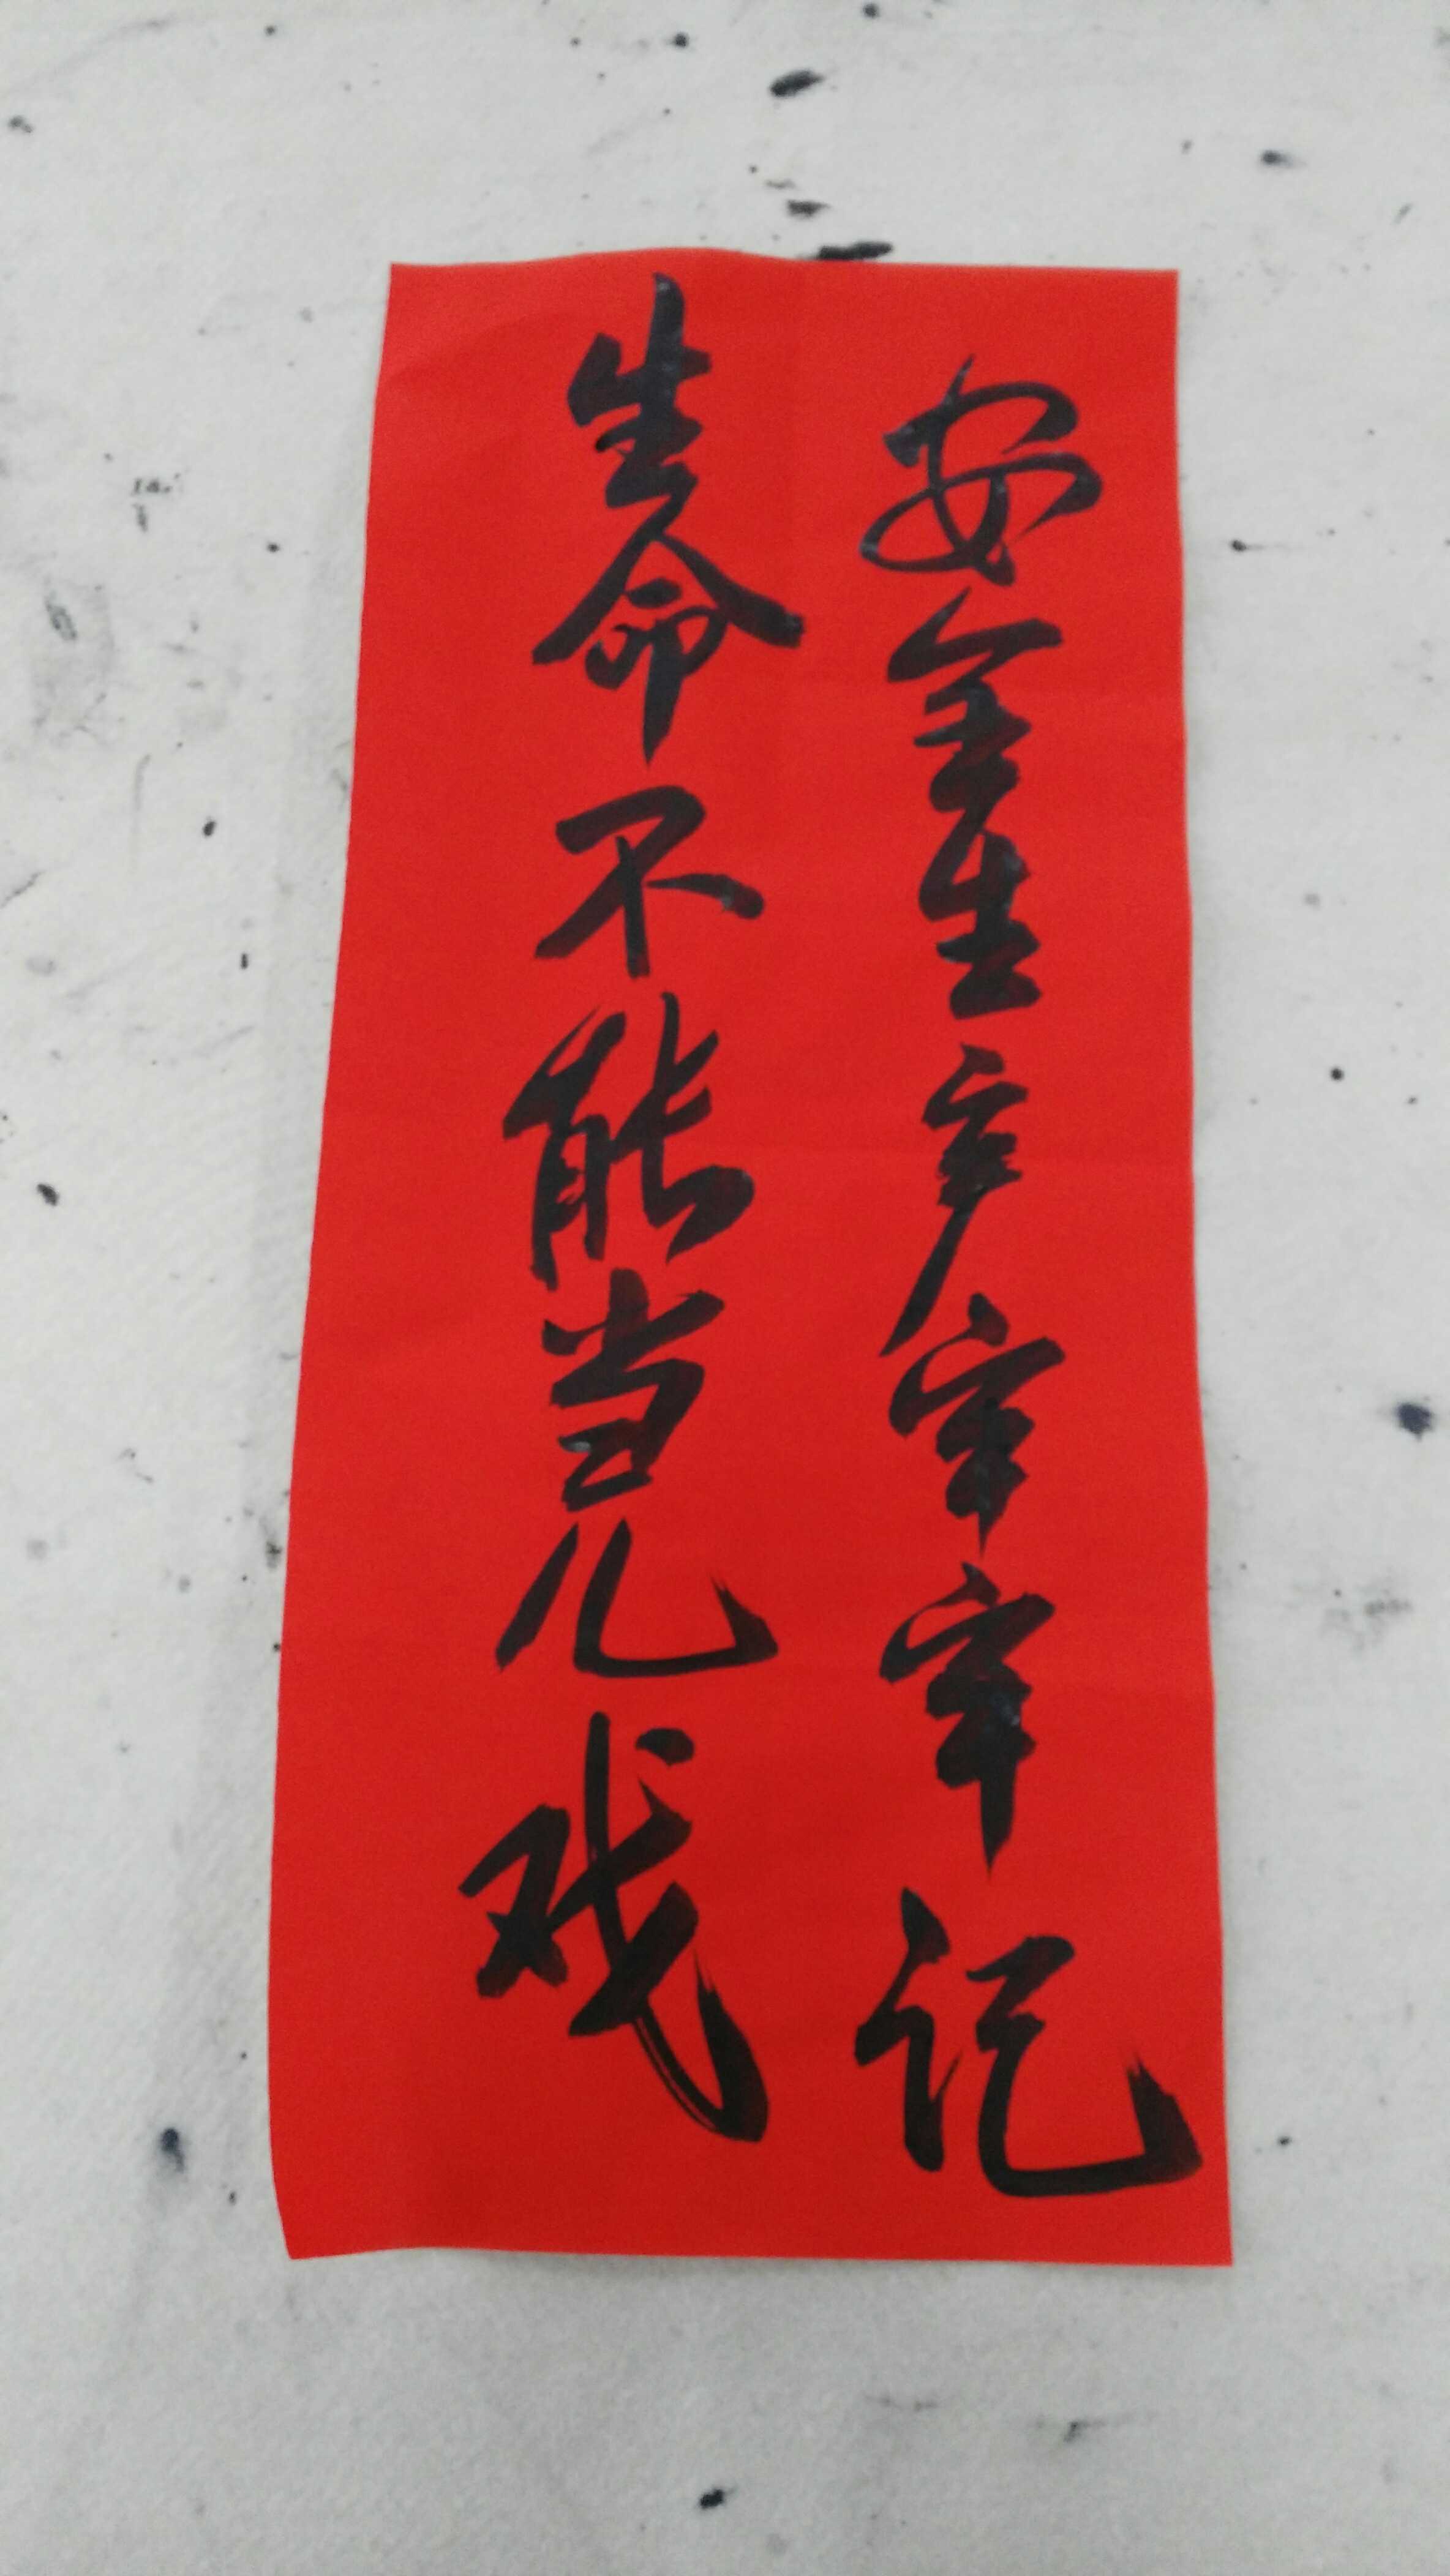 安全生产牢牢记
生命不能当儿戏